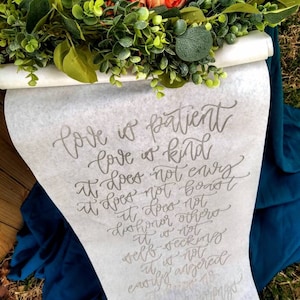 love is patient
love is kind
it does not envy
it does not boast
it does not
dishonor others
it is not
self-seeking
it is not
easily angered